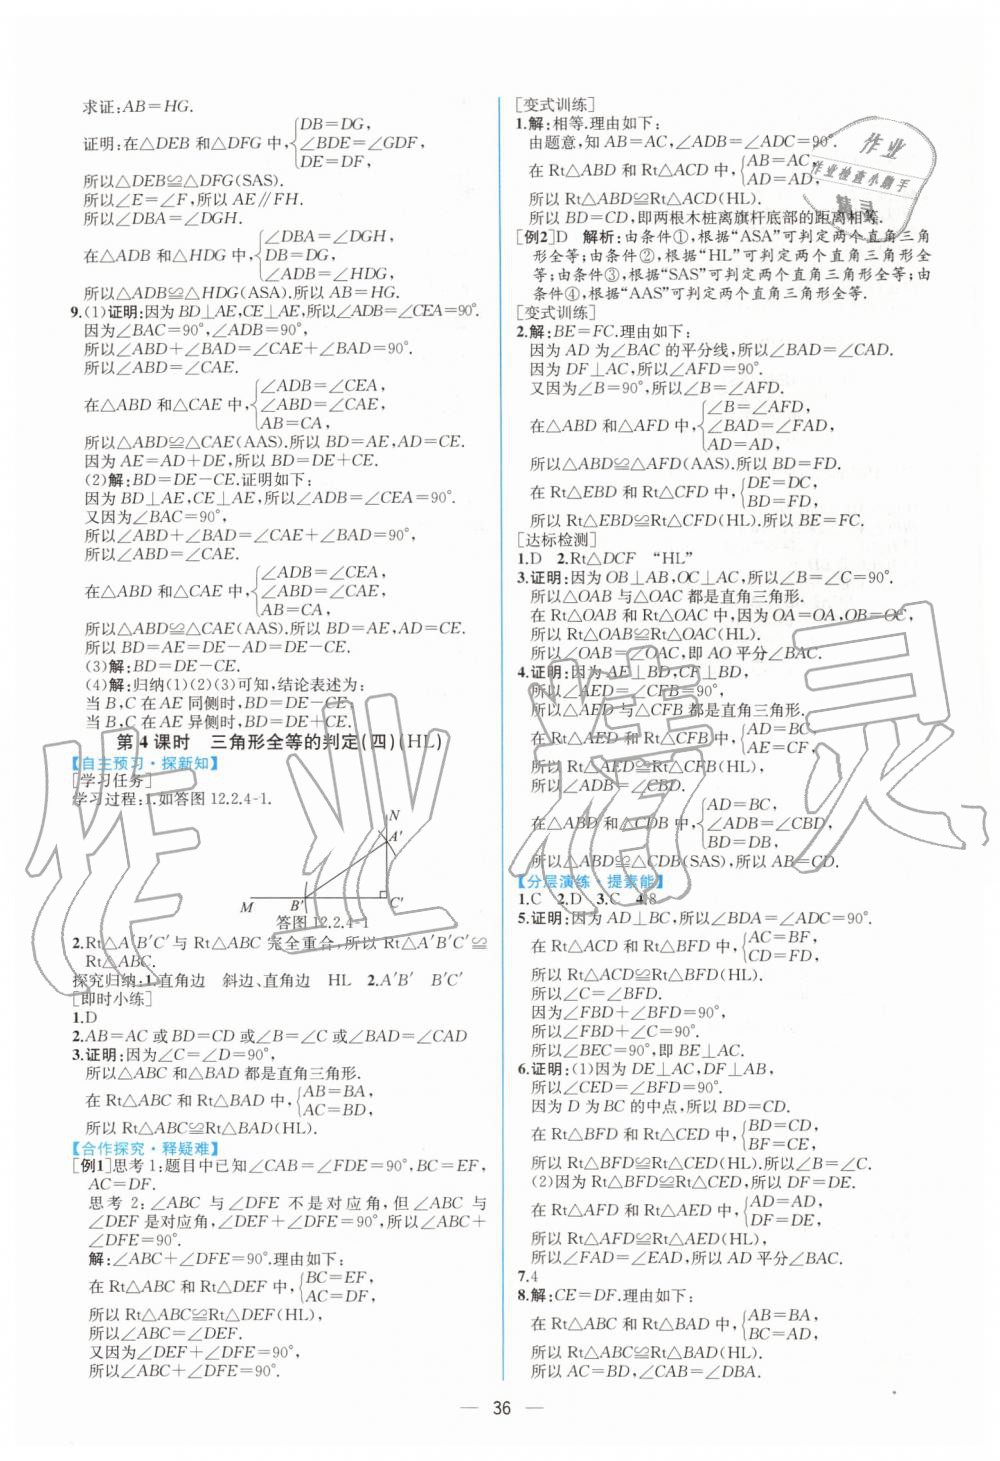 求证:AB=HG.
证明:在△DEB 和△DFG 中,{DB=DG,
∠BDE=∠GDF,
DE=DF,
所以△DEB≌△DFG(SAS).
所以∠E=∠F,所以 AE∥FH.
所以∠DBA=∠DGH,
在△ADB 和△HDG 中,{∠DBA=∠DGH,
DB=DG,
∠ADB=∠HDG,
所以△ADB≌△HDG(ASA).所以 AB=HG.
9.(1)证明:因为 BD⊥AE,CE⊥AE,所以∠ADB=∠CEA=90°.
因为∠BAC=90°,∠ADB=90°.
所以∠ABD+∠BAD=∠CAE+∠BAD=90°.
所以∠ABD=∠CAE.
在△ABD 和△CAE 中,{∠ADB=∠CEA,
∠ABD=∠CAE,
AB=CA,
所以△ABD≌△CAE(AAS).所以 BD=AE,AD=CE.
因为 AE=AD+DE,所以 BD=DE+CE.
(2)解:BD=DE-CE.证明如下:
因为 BD⊥AE,CE⊥AE,所以∠ADB=∠CEA=90°.
又因为∠BAC=90°,
所以∠ABD+∠BAD=∠CAE+∠BAD=90°.
所以∠ABD=∠CAE.
在△ABD 和△CAE 中,{∠ADB=∠CEA,
∠ABD=∠CAE,
AB=CA,
所以△ABD≌△CAE(AAS).所以 BD=AE,AD=CE.
所以 BD=AE=DE-AD=DE-CE.
(3)解:BD=DE-CE.
(4)解:归纳(1)(2)(3)可知,结论表述为:
当 B,C 在 AE 同侧时,BD=DE-CE;
当 B,C 在 AE 异侧时,BD=DE+CE.
第 4 课时 三角形全等的判定(四)(HL)
【自主预习·探新知】
[学习任务]
学习过程:1.如答图 12.2.4-1.
N
A′
M B′ C′
答图 12.2.4-1
2.Rt△A′B′C′与 Rt△ABC 完全重合,所以 Rt△A′B′C′≌
Rt△ABC.
探究归纳:1.直角边 斜边、直角边 HL 2.A′B′ B′C′
[即时小练]
1.D
2.AB=AC 或 BD=CD 或∠B=∠C 或∠BAD=∠CAD
3.证明:因为∠C=∠D=90°,
所以△ABC 和△BAD 都是直角三角形.
在 Rt△ABC 和 Rt△BAD 中,{AB=BA,
AC=BD,
所以 Rt△ABC≌Rt△BAD(HL).
【合作探究·释疑难】
[例1]思考 1:题目中已知∠CAB=∠FDE=90°,BC=EF,
AC=DF.
思考 2:∠ABC 与∠DFE 不是对应角,但∠ABC 与
∠DEF 是对应角,∠DEF+∠DFE=90°,所以∠ABC+
∠DFE=90°.
解:∠ABC+∠DFE=90°.理由如下:
在 Rt△ABC 和 Rt△DEF 中,{BC=EF,
AC=DF,
所以 Rt△ABC≌Rt△DEF(HL),
所以∠ABC=∠DEF.
又因为∠DEF+∠DFE=90°,
所以∠ABC+∠DFE=90°.
[变式训练]
1.解:相等.理由如下:
由题意,知 AB=AC,∠ADB=∠ADC=90°.
在 Rt△ABD 和 Rt△ACD 中,{AB=AC,
AD=AD,
所以 Rt△ABD≌Rt△ACD(HL).
所以 BD=CD,即两根木桩离旗杆底部的距离相等.
[例2]D 解析:由条件①,根据“ASA”可判定两个直角三角
形全等;由条件②,根据“HL”可判定两个直角三角形全
等;由条件③,根据“SAS”可判定两个直角三角形全等;由
条件④,根据“AAS”可判定两个直角三角形全等.
[变式训练]
2.解:BE=FC.理由如下:
因为 AD 为∠BAC 的平分线,所以∠BAD=∠CAD.
因为 DF⊥AC,所以∠AFD=90°.
又因为∠B=90°,所以∠B=∠AFD.
在△ABD 和△AFD 中,{∠B=∠AFD,
∠BAD=∠FAD,
AD=AD,
所以△ABD≌△AFD(AAS).所以 BD=FD.
在 Rt△EBD 和 Rt△CFD 中,{DE=DC,
BD=FD,
所以 Rt△EBD≌Rt△CFD(HL).所以 BE=FC.
[达标检测]
1.D 2.Rt△DCF “HL”
3.证明:因为 OB⊥AB,OC⊥AC,所以∠B=∠C=90°.
所以△OAB 与△OAC 都是直角三角形.
在 Rt△OAB 和 Rt△OAC 中,因为 OA=OA,OB=OC,
所以 Rt△OAB≌Rt△OAC(HL).
所以∠OAB=∠OAC,即 AO 平分∠BAC.
4.证明:因为 AE⊥BD,CF⊥BD,
所以∠AED=∠CFB=90°.
所以△AED 与△CFB 都是直角三角形.
在 Rt△AED 和 Rt△CFB 中,{AD=BC,
AE=CF,
所以 Rt△AED≌Rt△CFB(HL).
所以∠ADE=∠CBD.
在△ABD 和△CDB 中,{AD=BC,
∠ADB=∠CBD,
BD=DB,
所以△ABD≌△CDB(SAS),所以 AB=CD.
【分层演练·提素能】
1.C 2.D 3.C 4.8
5.证明:因为 AD⊥BC,所以∠BDA=∠ADC=90°.
在 Rt△ACD 和 Rt△BFD 中,{AC=BF,
CD=FD,
所以 Rt△ACD≌Rt△BFD(HL).
所以∠C=∠BFD.
因为∠FBD+∠BFD=90°,
所以∠FBD+∠C=90°.
所以∠BEC=90°,即 BE⊥AC.
6.证明:(1)因为 DE⊥AC,DF⊥AB,
所以∠CED=∠BFD=90°.
因为 D 为 BC 的中点,所以 BD=CD.
在 Rt△BFD 和 Rt△CED 中,{BD=CD,
BF=CE,
所以 Rt△BFD≌Rt△CED(HL).所以∠B=∠C.
(2)因为 Rt△BFD≌Rt△CED,所以 DF=DE.
在 Rt△AFD 和 Rt△AED 中,{AD=AD,
DF=DE,
所以 Rt△AFD≌Rt△AED(HL).
所以∠FAD=∠EAD,所以 AD 平分∠BAC.
7.4
8.解:CE=DF.理由如下:
在 Rt△ABC 和 Rt△BAD 中,{AB=BA,
BC=AD,
所以 Rt△ABC≌Rt△BAD(HL).
所以 AC=BD,∠CAB=∠DBA.
— 36 —
作业
作业检查小助手
精灵
作业精灵